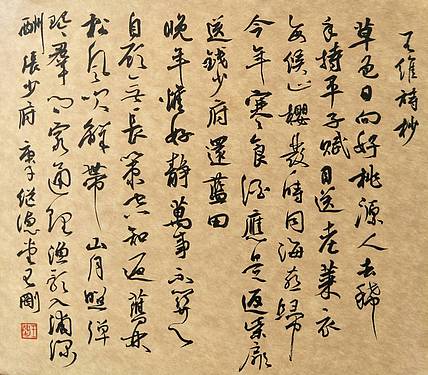 王維詩抄
草色日向好桃源人去稀
手持平子賦目送老萊衣
每候山櫻發時同海燕歸
今年寒食酒應是返柴扉
送錢少府還藍田
晚年惟好靜萬事不關心
自顧無長策空知返舊林
松風吹解帶山月照彈
琴君問窮通理漁歌入浦深
酬張少府 庚子 堂王剛